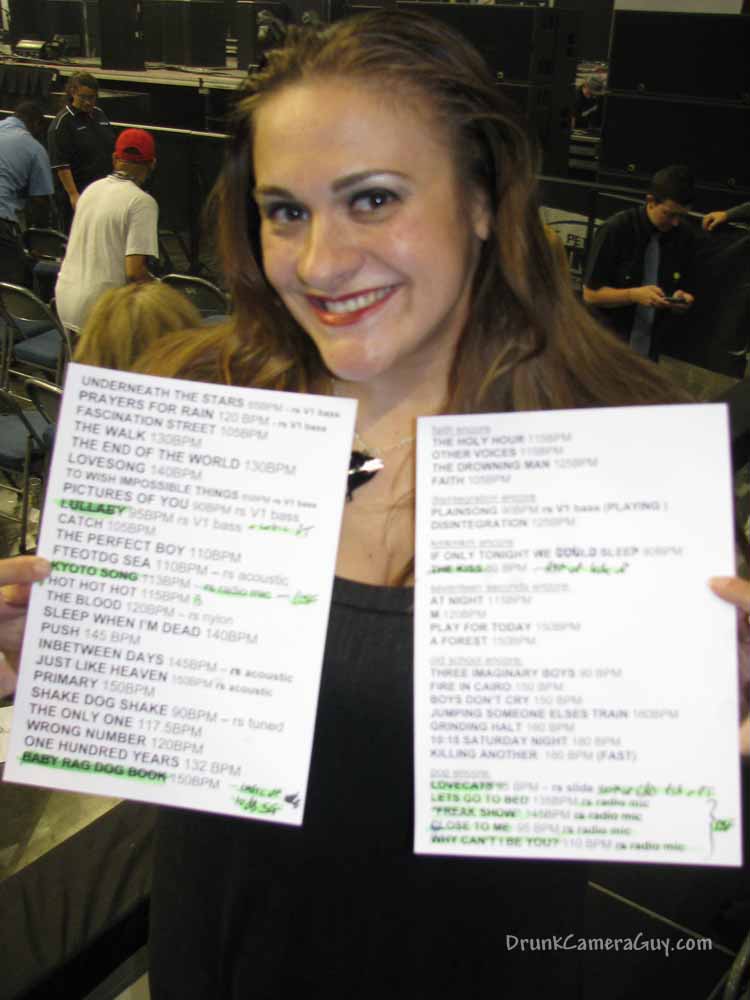 UNDERNEATH THE STARS 85BPM - rs V1 bass
PRAYERS FOR RAIN 120 BPM - rs V1 bass
FASCINATION STREET 105BPM
THE WALK 130BPM
THE END OF THE WORLD 130BPM
LOVESONG 140BPM
TO WISH IMPOSSIBLE THINGS rs V1 bass
PICTURES OF YOU 90BPM rs V1 bass
LULLABY 95BPM rs V1 bass
CATCH 105BPM
THE PERFECT BOY 110BPM
FTEOTDG SEA 110BPM – rs acoustic
KYOTO SONG 113BPM - rs radio mic
HOT HOT HOT 115BPM
THE BLOOD 120BPM – rs nylon
SLEEP WHEN I'M DEAD 140BPM
PUSH 145 BPM
INBETWEEN DAYS 145BPM – rs acoustic
JUST LIKE HEAVEN 150BPM rs acoustic
PRIMARY 150BPM
SHAKE DOG SHAKE 90BPM – rs tuned
THE ONLY ONE 117.5BPM
WRONG NUMBER 120BPM
ONE HUNDRED YEARS 132 BPM
BABY RAG DOG BOOK 150BPM
faith encore
THE HOLY HOUR 115BPM
OTHER VOICES 115BPM
THE DROWNING MAN 125BPM
FAITH 105BPM
disintegration encore
PLAINSONG 90BPM rs V1 bass (PLAYING )
DISINTEGRATION 125BPM
IF ONLY TONIGHT WE COULD SLEEP 90BPM
THE KISS 80 BPM
seventeen seconds encore
AT NIGHT 115BPM
M 120BPM
PLAY FOR TODAY 150BPM
A FOREST 150BPM
old school encore
THREE IMAGINARY BOYS 90 BPM
FIRE IN CAIRO 150 BPM
BOYS DON'T CRY 150 BPM
JUMPING SOMEONE ELSES TRAIN 160BPM
GRINDING HALT 160 BPM
10:15 SATURDAY NIGHT 180 BPM
KILLING ANOTHER 180 BPM (FAST)
pop encore
LOVECATS 95 BPM – rs slide
LETS GO TO BED 135BPM rs radio mic
"FREAK SHOW" 145BPM rs radio mic
CLOSE TO ME 95 BPM rs radio mic
WHY CAN'T I BE YOU? 110 BPM rs radio mic
DrunkCameraGuy.com